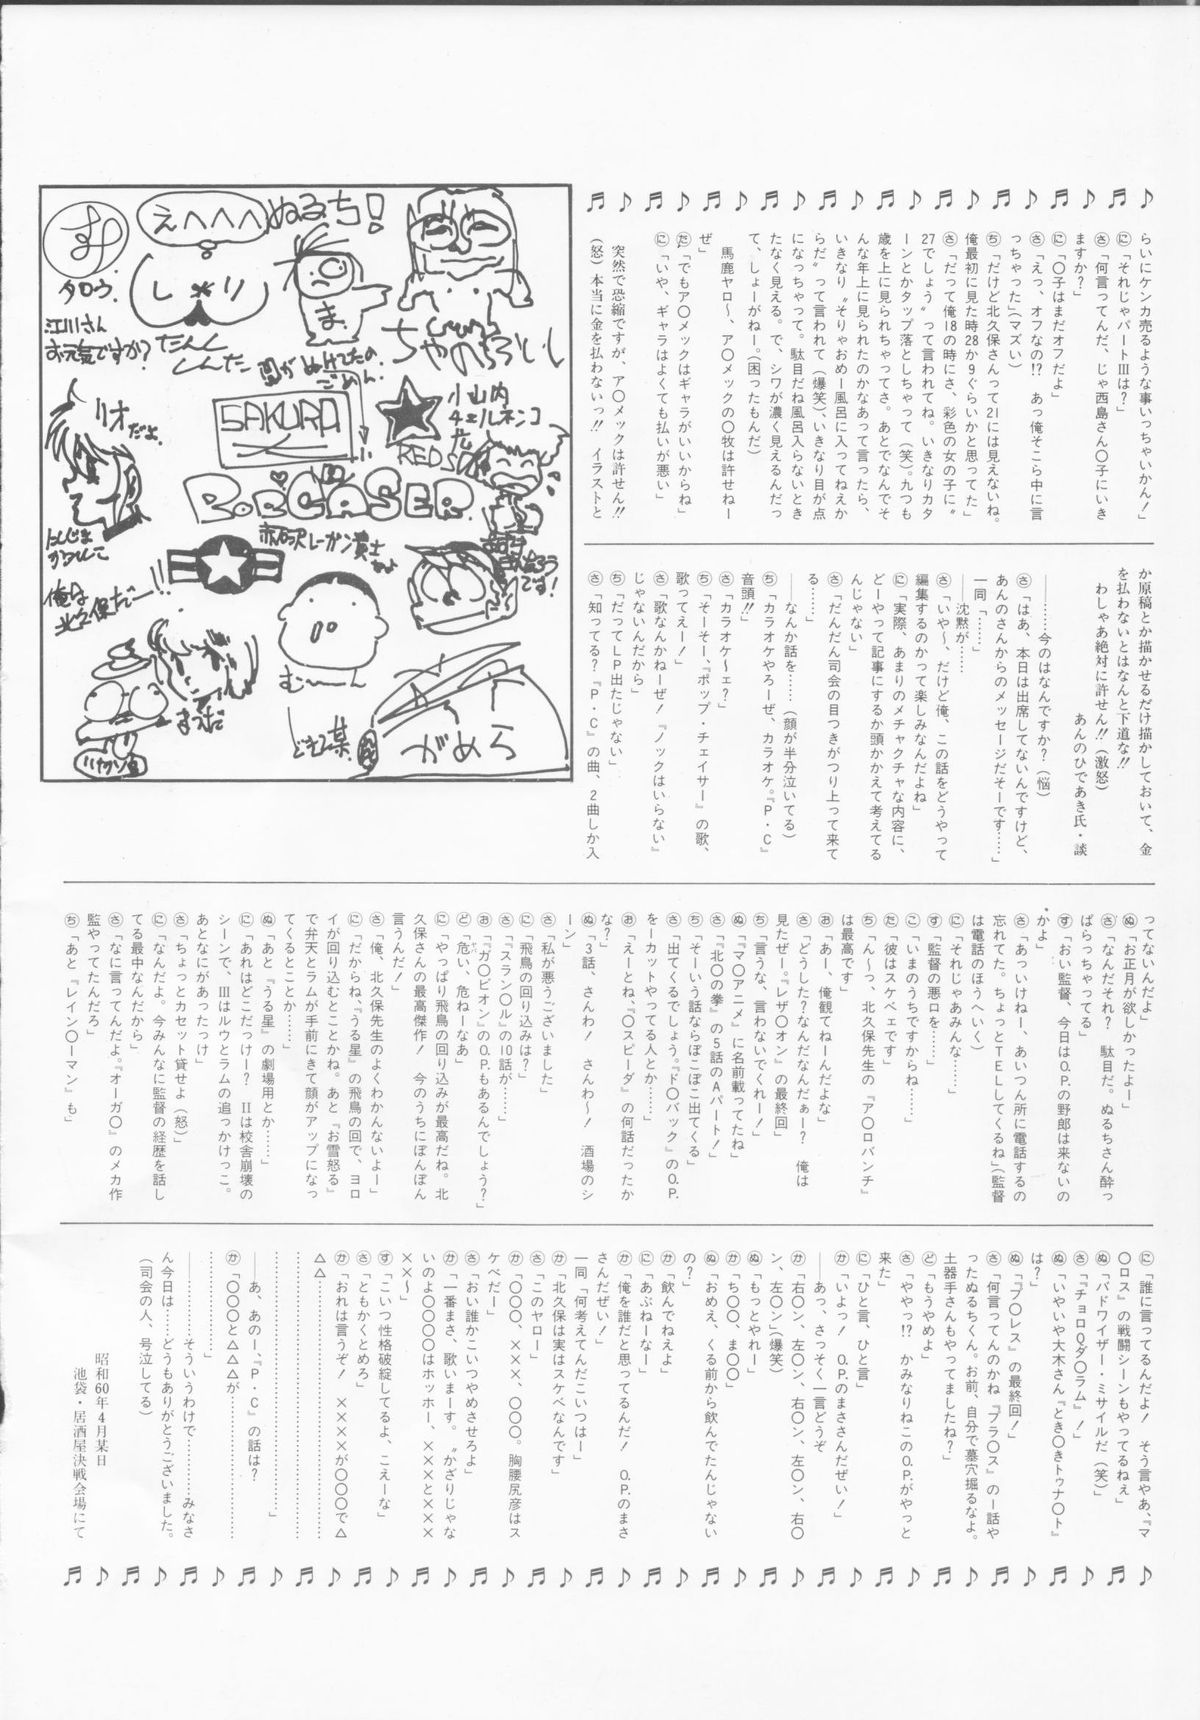 らいにケンカ売るような事いっちゃいかん！」
に「それじゃパートⅢは？」
さ「何言ってんだ、じゃ西島さん〇子にいき
ますか？」
に「〇子はまだオフだよ」
さ「えっ、オフなの!? あっ俺そこら中に言
っちゃった」(マズい)
ち「だけど北久保さんって21には見えないね。
俺最初に見た時28か9ぐらいかと思ってた」
さ「だって俺18の時にさ、彩色の女の子に〝
27でしょう〟って言われてね。いきなりカタ
ーンとかタップ落としちゃって(笑)。九つも
歳を上に見られちゃってさ。あとでなんでそ
んな年上に見られたのかなあって言ったら、
いきなり〝そりゃおめー風呂に入ってねえか
らだ〟って言われて(爆笑)、いきなり目が点
になっちゃって。駄目だね風呂入らないとき
たなく見える。で、シワが濃く見えるんだっ
て、しょーがねー。(困ったもんだ)
馬鹿ヤロ〜、ア〇メックの〇牧は許せねー
ぜ」
た「でもア〇メックはギャラがいいからね」
に「いや、ギャラはよくても払いが悪い」
突然で恐縮ですが、ア〇メックは許せん!!
(怒)本当に金を払わないっ!! イラストと
か原稿とか描かせるだけ描かしておいて、金
を払わないとはなんと下道な!!
わしゃあ絶対に許せん!!(激怒)
あんのひであき氏・談
―………今のはなんですか？(悩)
さ「はあ、本日は出席してないんですけど、
あんのさんからのメッセージだそーです……」
一同「………」
――沈黙が……
さ「いや〜、だけど俺、この話をどうやって
編集するのかって楽しみなんだよね」
に「実際、あまりのメチャクチャな内容に、
どーやって記事にするか頭かかえて考えてる
んじゃない」
さ「だんだん司会の目つきがつり上って来て
る………」
――なんか話を……(顔が半分泣いてる)
ち「カラオケやろーぜ、カラオケ。『P・C』
音頭!!」
さ「カラオケ〜ェ？」
ち「そーそー、『ポップ・チェイサー』の歌、
歌ってえー！」
さ「歌なんかねーぜ！『ノックはいらない』
じゃないんだから」
ち「だってLP出たじゃない」
さ「知ってる？『P・C』の曲、2曲しか入
ってないんだよ」
ぬ「お正月が欲しかったよー」
さ「なんだそれ？ 駄目だ。ぬるちさん酔っ
ぱらっちゃってる」
す「おい監督、今日はO.P.の野郎は来ないの
かよ」
さ「あっいけねー、あいつん所に電話するの
忘れてた。ちょっとTELしてくるね」(監督
は電話のほうへいく)
に「それじゃあみんな……」
す「監督の悪口を……」
こ「いまのうちですからね……」
た「彼はスケベェです」
ち「んーっ、北久保先生の『ア〇ロバンチ』
は最高です」
お「あー、俺観てねーんだよな」
さ「どうした？なんだなんだぁー？ 俺は
見たぜー。『レザ〇オン』の最終回」
ち「言うな、言わないでくれー！」
ぬ「『マ〇アニメ』に名前載ってたね」
さ「『北〇の拳』の5話のAパート！」
ち「そーいう話ならぽこぽこ出てくる」
さ「出てくるでしょう。『ド〇バック』のO.P.
をーカットやってる人とか……」
お「えーとね、『〇スピーダ』の何話だったか
な？」
ぬ「3話、さんわ！ さんわ〜！ 酒場のシ
ーン」
さ「私が悪うございました」
に「飛鳥の回り込みは？」
さ「『スラン〇ル』の10話が……」
お「『ガ〇ビオン』のO.P.もあるんでしょう？」
ど「危い、危ねーなあ」
に「やっぱり飛鳥の回り込みが最高だね。北
久保さんの最高傑作！ 今のうちにぽんぽん
言うんだ！」
さ「俺、北久保先生のよくわかんないよー」
に「だからね、『うる星』の飛鳥の回で、ヨロ
イが回り込むとことかね。あと『お雪怒る』
で弁天とラムが手前にきて顔がアップになっ
てくるとことか……」
ぬ「あと『うる星』の劇場用とか……」
に「あれはどこだっけー？ Ⅱは校舎崩壊の
シーンで、Ⅲはルウとラムの追っかけっこ。
あとなにがあったっけ
さ「ちょっとカセット貸せよ(怒)」
に「なんだよ。今みんなに監督の経歴を話し
てる最中なんだから」
さ「なに言ってんだよ。『オーガ〇』のメカ作
監やってたんだろ」
ち「あと『レイン〇ーマン』も」
に「誰に言ってるんだよ！ そう言やあ、『マ
〇ロス』の戦闘シーンもやってるねぇ」
ぬ「バドワイザー・ミサイルだ(笑)」
さ「『チョロQダ〇ラム』！」
ぬ「いやいや大木さん『とき〇きトゥナ〇ト』
は？」
ぬ「『プ〇レス』の最終回！」
さ「何言ってんのかね『プラ〇ス』の一話や
ったぬるちくん。お前、自分で墓穴掘るなよ。
土器手さんもやってましたね？」
ど「もうやめよ」
さ「ややっ!? かみなりねこのO.P.がやっと
来た」
に「ひと言、ひと言」
か「いよっ！ O.P.のまささんだぜい！」
――あっ、さっそく一言どうぞ
か「右〇ン、左〇ン、右〇ン、左〇ン、右〇
ン、左〇ン」(爆笑)
ぬ「もっとやれー」
か「ち〇〇、ま〇〇」
ぬ「おめえ、くる前から飲んでたんじゃない
の？」
か「飲んでねえよ」
に「あぶねーなー」
か「俺を誰だと思ってるんだ！ O.P.のまさ
さんだぜい！」
一同「何考えてんだこいつはー」
か「北久保は実はスケベなんです」
さ「このヤロー」
か「〇〇〇、×××、〇〇〇。胸腰尻彦はス
ケベだー」
さ「おい誰かこいつやめさせろよ」
か「一番まさ、歌いまーす。〝かざりじゃな
いのよ〇〇〇〇はホッホー、×××と×××
××〜」
す「こいつ性格破綻してるよ、こえーな」
さ「ともかくとめろ」
か「おれは言うぞ！ ××××が〇〇〇で△
△△…………………………
…………………………」
――あ、あのー、『P・C』の話は？
か「〇〇〇と△△△が…………
…………」
――………そういうわけで………みなさ
ん今日は……どうもありがとうございました。
(司会の人、号泣してる)
昭和60年4月某日
池袋・居酒屋決戦会場にて
えへへへ
ぬるち！
タロウ.
江川さん
お元気ですか？
しり
たんく
しんた
ま
ちゃのようし
間がぬけてたの.
ごめん.
SAKURA
小山内
チェルネンコ
RED S
リオだよ.
P.P CASER
赤沢レーガン貴士
だよ
にしじま
かつひこ
俺が
北久保だー!!
です！
むーん
まつだ
どきて某
がめら